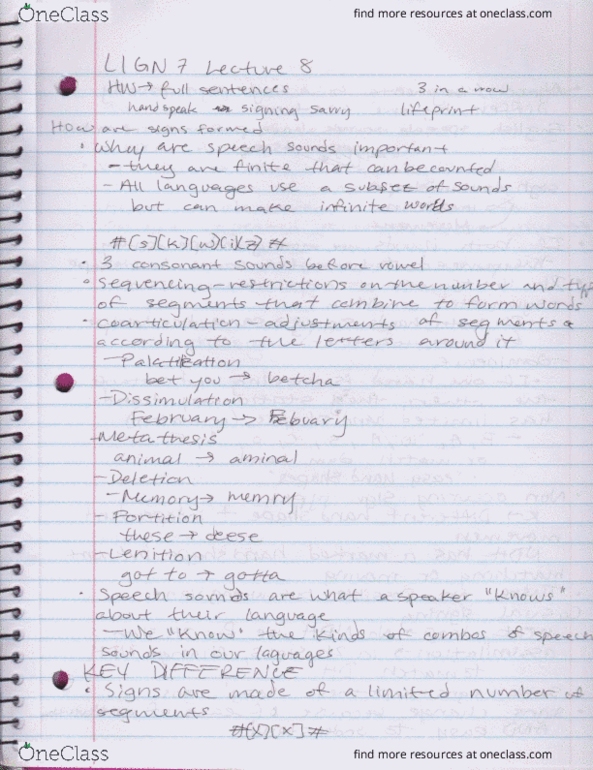 OneClass find more resources at oneclass.com
LIGN 7 Lecture 8
HW → full sentences 3 in a row
handspeak signing savvy lifeprint
How are signs formed
• Whay are speech sounds important
- they are finite that can be counted
- All languages use a subset of sounds
but can make infinite words
#[s][k][w][i][z]#
• 3 consonant sounds before vowel
• sequencing - restrictions on the number and typ
of segments that combine to form words
• coarticulation - adjustments of segments
according to the letters around it
- Palatization
bet you → betcha
- Dissimulation
February → Febuary
- Metathesis
animal → aminal
- Deletion
- Memory → memry
- Fortition
these → deese
- Lenition
got to → gotta
• Speech sounds are what a speaker "Knows"
about their language
- We "Know" the kinds of combos of speech
sounds in our laguages
KEY DIFFERENCE
• Signs are made of a limited number of
segments
#[X][X]#
OneClass find more resources at oneclass.com